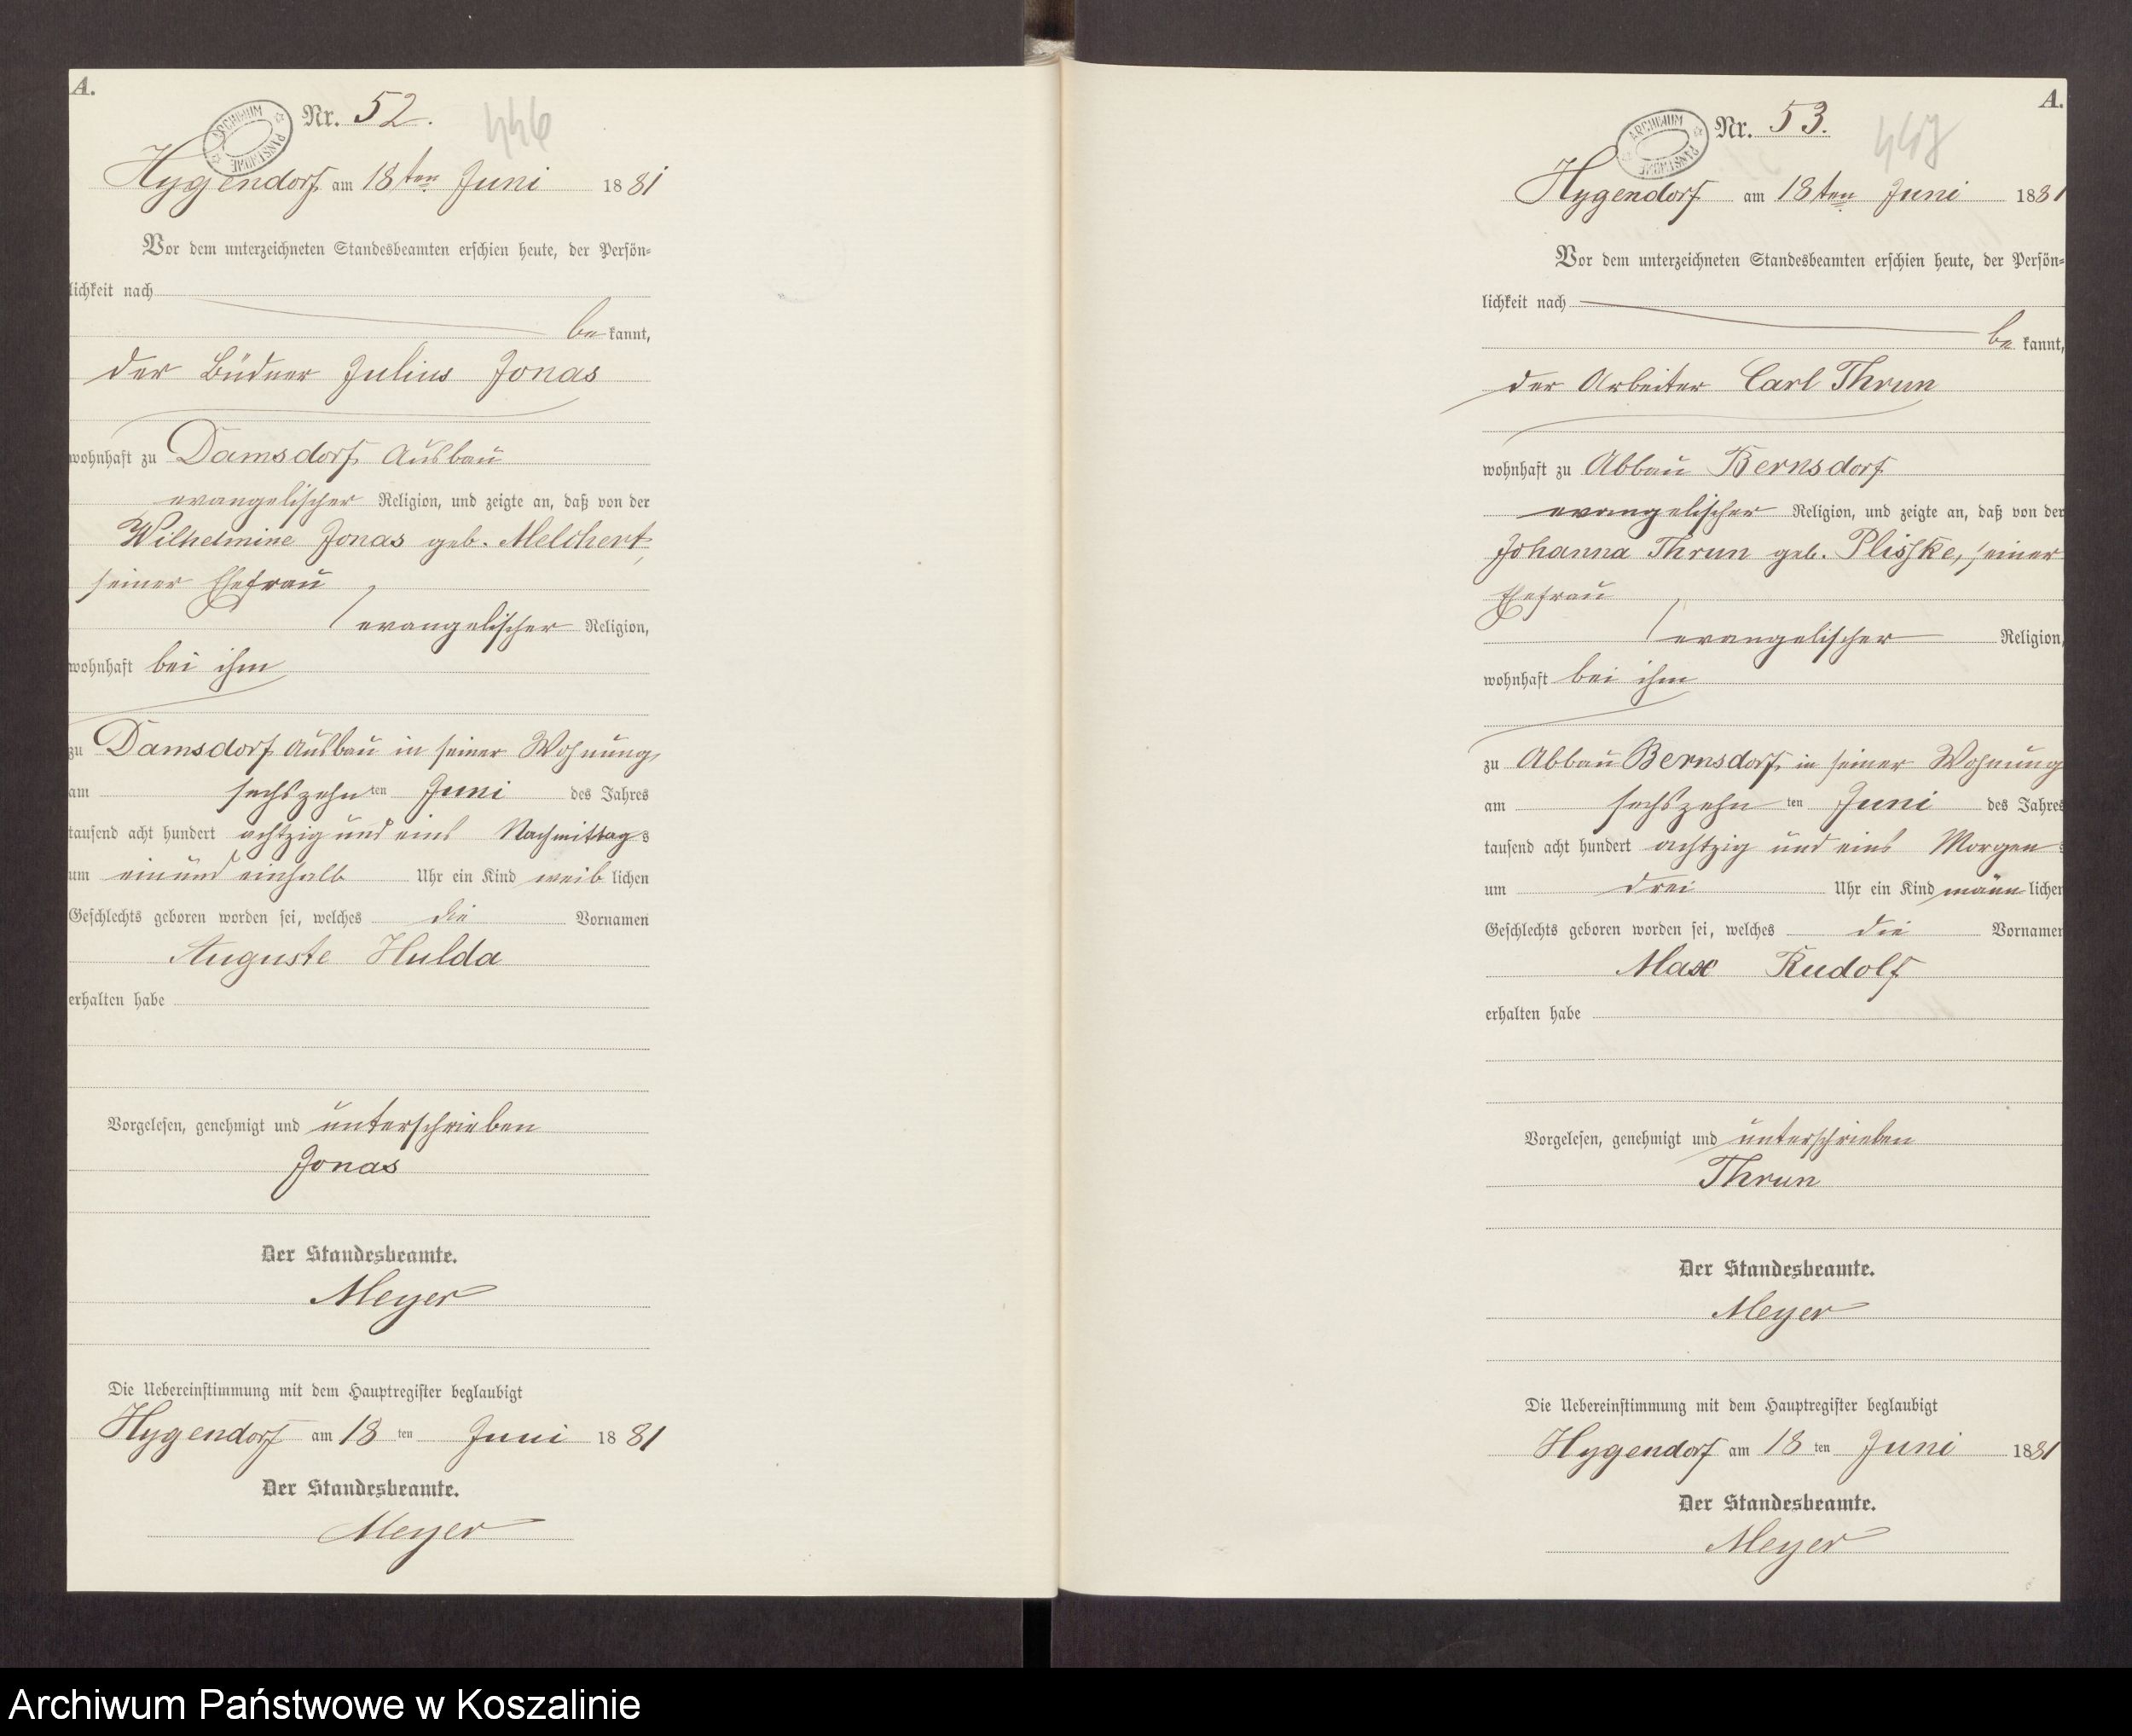 A.
Nr. 52.
446
ARCHIWUM PAŃSTWOWE
Hygendorf am 18ten Juni 1881
Vor dem unterzeichneten Standesbeamten erschien heute, der Persön-
lichkeit nach
be kannt,
der Büdner Julius Jonas
wohnhaft zu Damsdorf Ausbau
evangelischer Religion, und zeigte an, daß von der
Wilhelmine Jonas geb. Melchert,
seiner Ehefrau
evangelischer Religion,
wohnhaft bei ihm
zu Damsdorf Ausbau in seiner Wohnung,
am sechszehn ten Juni des Jahres
tausend acht hundert achtzig und eins Nachmittags
um ein und einhalb Uhr ein Kind weib lichen
Geschlechts geboren worden sei, welches die Vornamen
Auguste Hulda
erhalten habe
Vorgelesen, genehmigt und unterschrieben
Jonas
Der Standesbeamte.
Meyer
Die Uebereinstimmung mit dem Hauptregister beglaubigt
Hygendorf am 18 ten Juni 1881
Der Standesbeamte.
Meyer
A.
Nr. 53.
447
ARCHIWUM PAŃSTWOWE
Hygendorf am 18ten Juni 1881
Vor dem unterzeichneten Standesbeamten erschien heute, der Persön-
lichkeit nach
be kannt,
der Arbeiter Carl Thrun
wohnhaft zu Abbau Bernsdorf
evangelischer Religion, und zeigte an, daß von der
Johanna Thrun geb. Plischke, seiner
Ehefrau
evangelischer Religion,
wohnhaft bei ihm
zu Abbau Bernsdorf, in seiner Wohnung
am sechszehn ten Juni des Jahres
tausend acht hundert achtzig und eins Morgens
um drei Uhr ein Kind männ lichen
Geschlechts geboren worden sei, welches die Vornamen
Max Rudolf
erhalten habe
Vorgelesen, genehmigt und unterschrieben
Thrun
Der Standesbeamte.
Meyer
Die Uebereinstimmung mit dem Hauptregister beglaubigt
Hygendorf am 18 ten Juni 1881
Der Standesbeamte.
Meyer
Archiwum Państwowe w Koszalinie